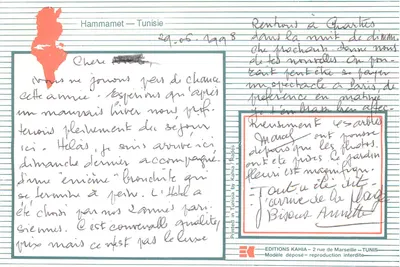 Hammamet — Tunisie
29-05-1998
Chère
Nous ne jouons pas de chance
cette année. Espérons qu'après
un mauvais hiver nous profi-
terons pleinement du séjour
ici - Hélas, je suis arrivée ici
dimanche dernier accompagnée
d'une "énorme" bronchite qui
se termine à peine. L'Hôtel a
été choisi par nos 2 amies pari-
siennes. C'est convenable qualité
prix mais ce n'est pas le luxe
Rentrons à Chartres
dans la nuit de diman-
che prochain. Donne nous
de tes nouvelles. On pour-
rait peut-être se payer
un spectacle à Paris, de
préférence en matinée
affec-
tueusement Les arbres
Marcel - ont poussé
depuis que les photos
ont été prises. Le jardin
fleuri est magnifique.
Tout a été dit
J'arrive de la plage
Bisous Annette
EDITIONS KAHIA - 2 rue de Marseille - TUNIS
Modèle déposé - reproduction interdite